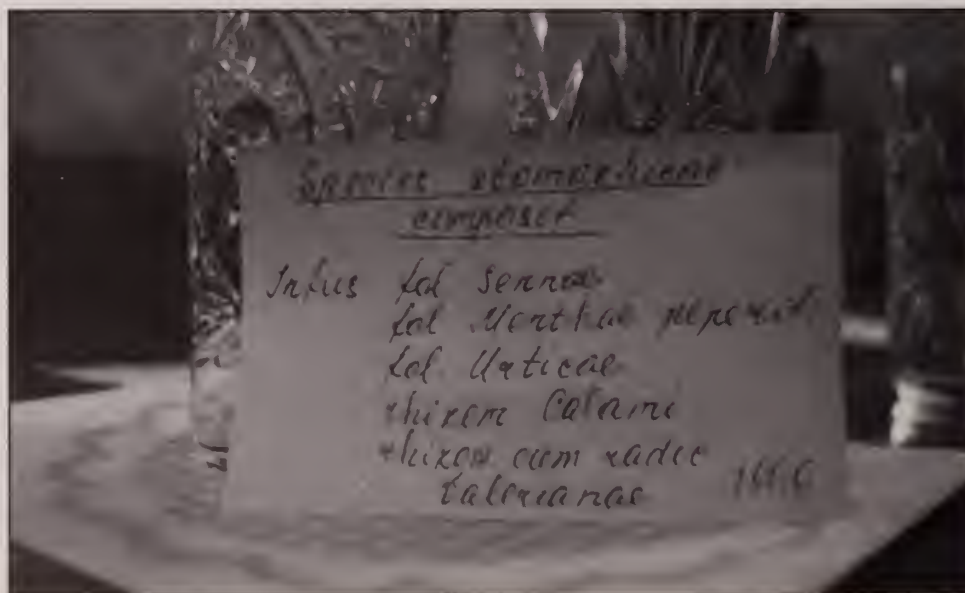 Species stomachicae
composit
Infus fol Sennae
fol Menthae piperit
fol Urticae
rhizom Calami
rhizom cum radic
Valerianae